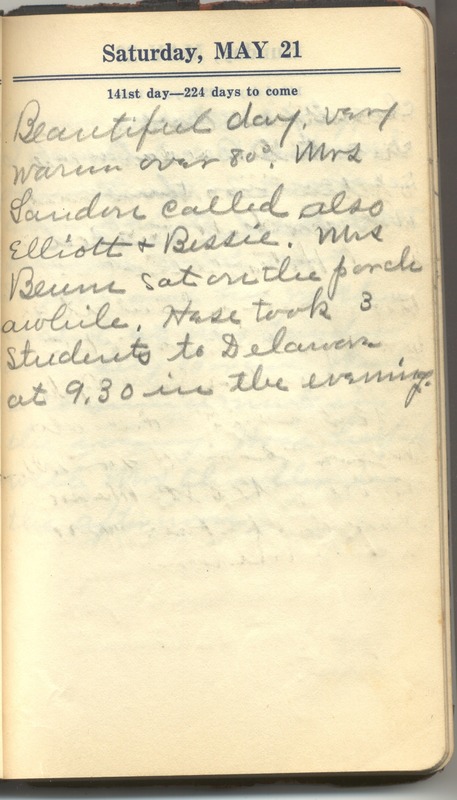 Saturday, MAY 21
141st day—224 days to come
Beautiful day, very
warm over 80°. Mrs
Landon called also
Elliott + Bessie. Mrs
sat on the porch
awhile. took 3
students to Delaware
at 9.30 in the evening.